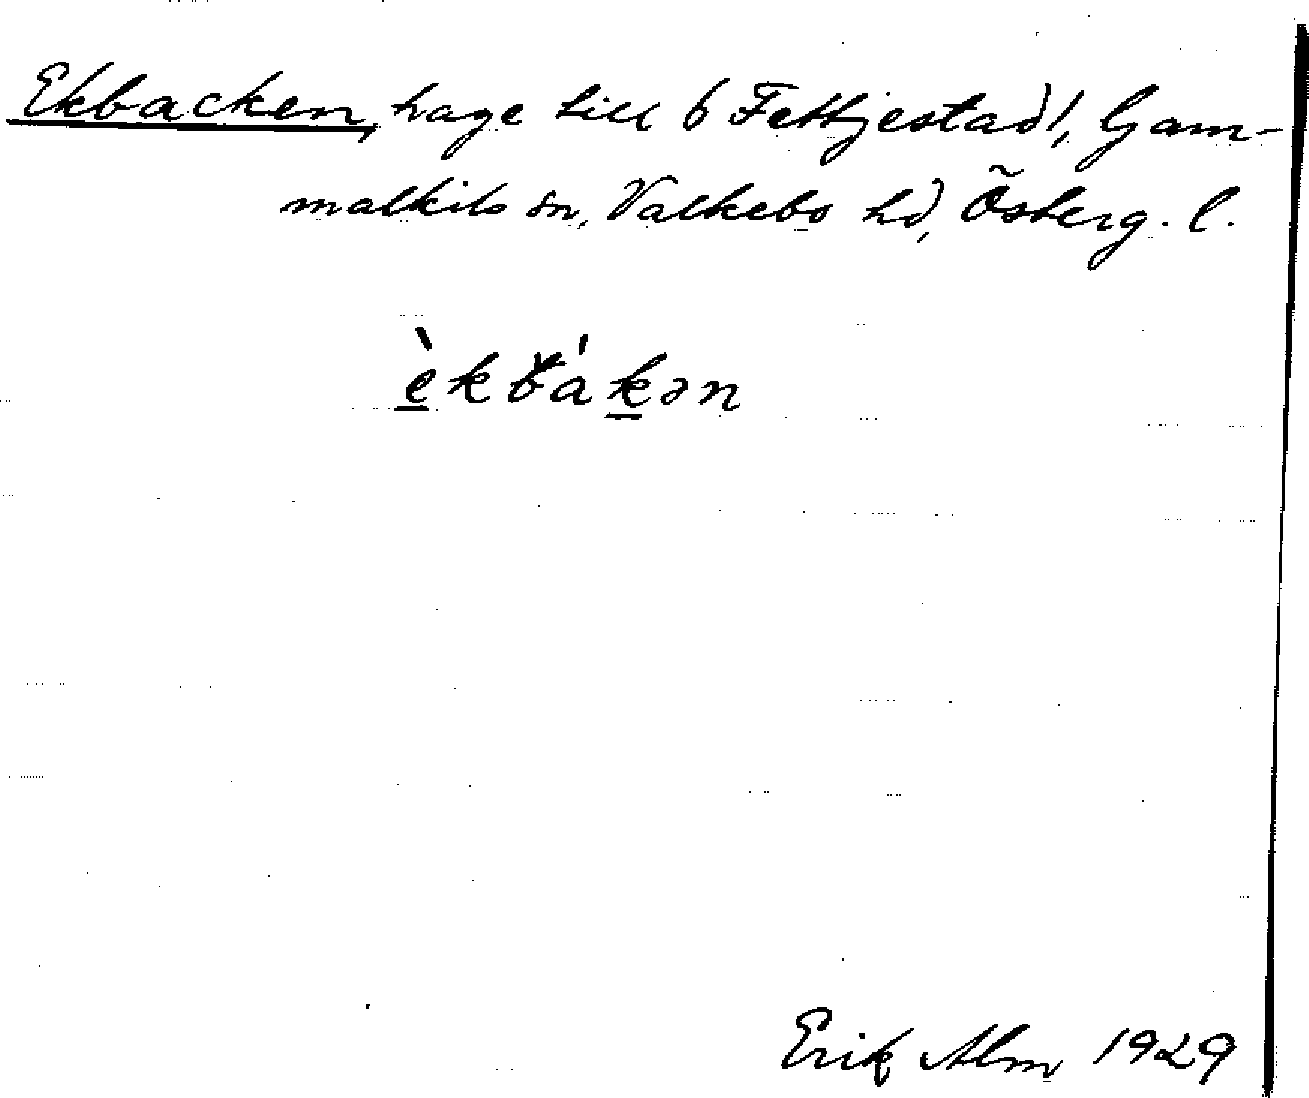 Ekbacken, hage till 6 Fettjestad!, Gam-
malkils sn, Valkebo hd, Österg. l.
èkbákən
Erik Alm 1929